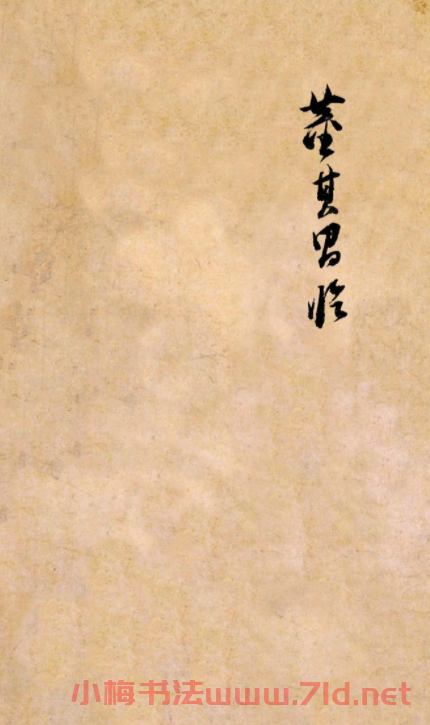 董其昌临
小梅书法www.7ld.net